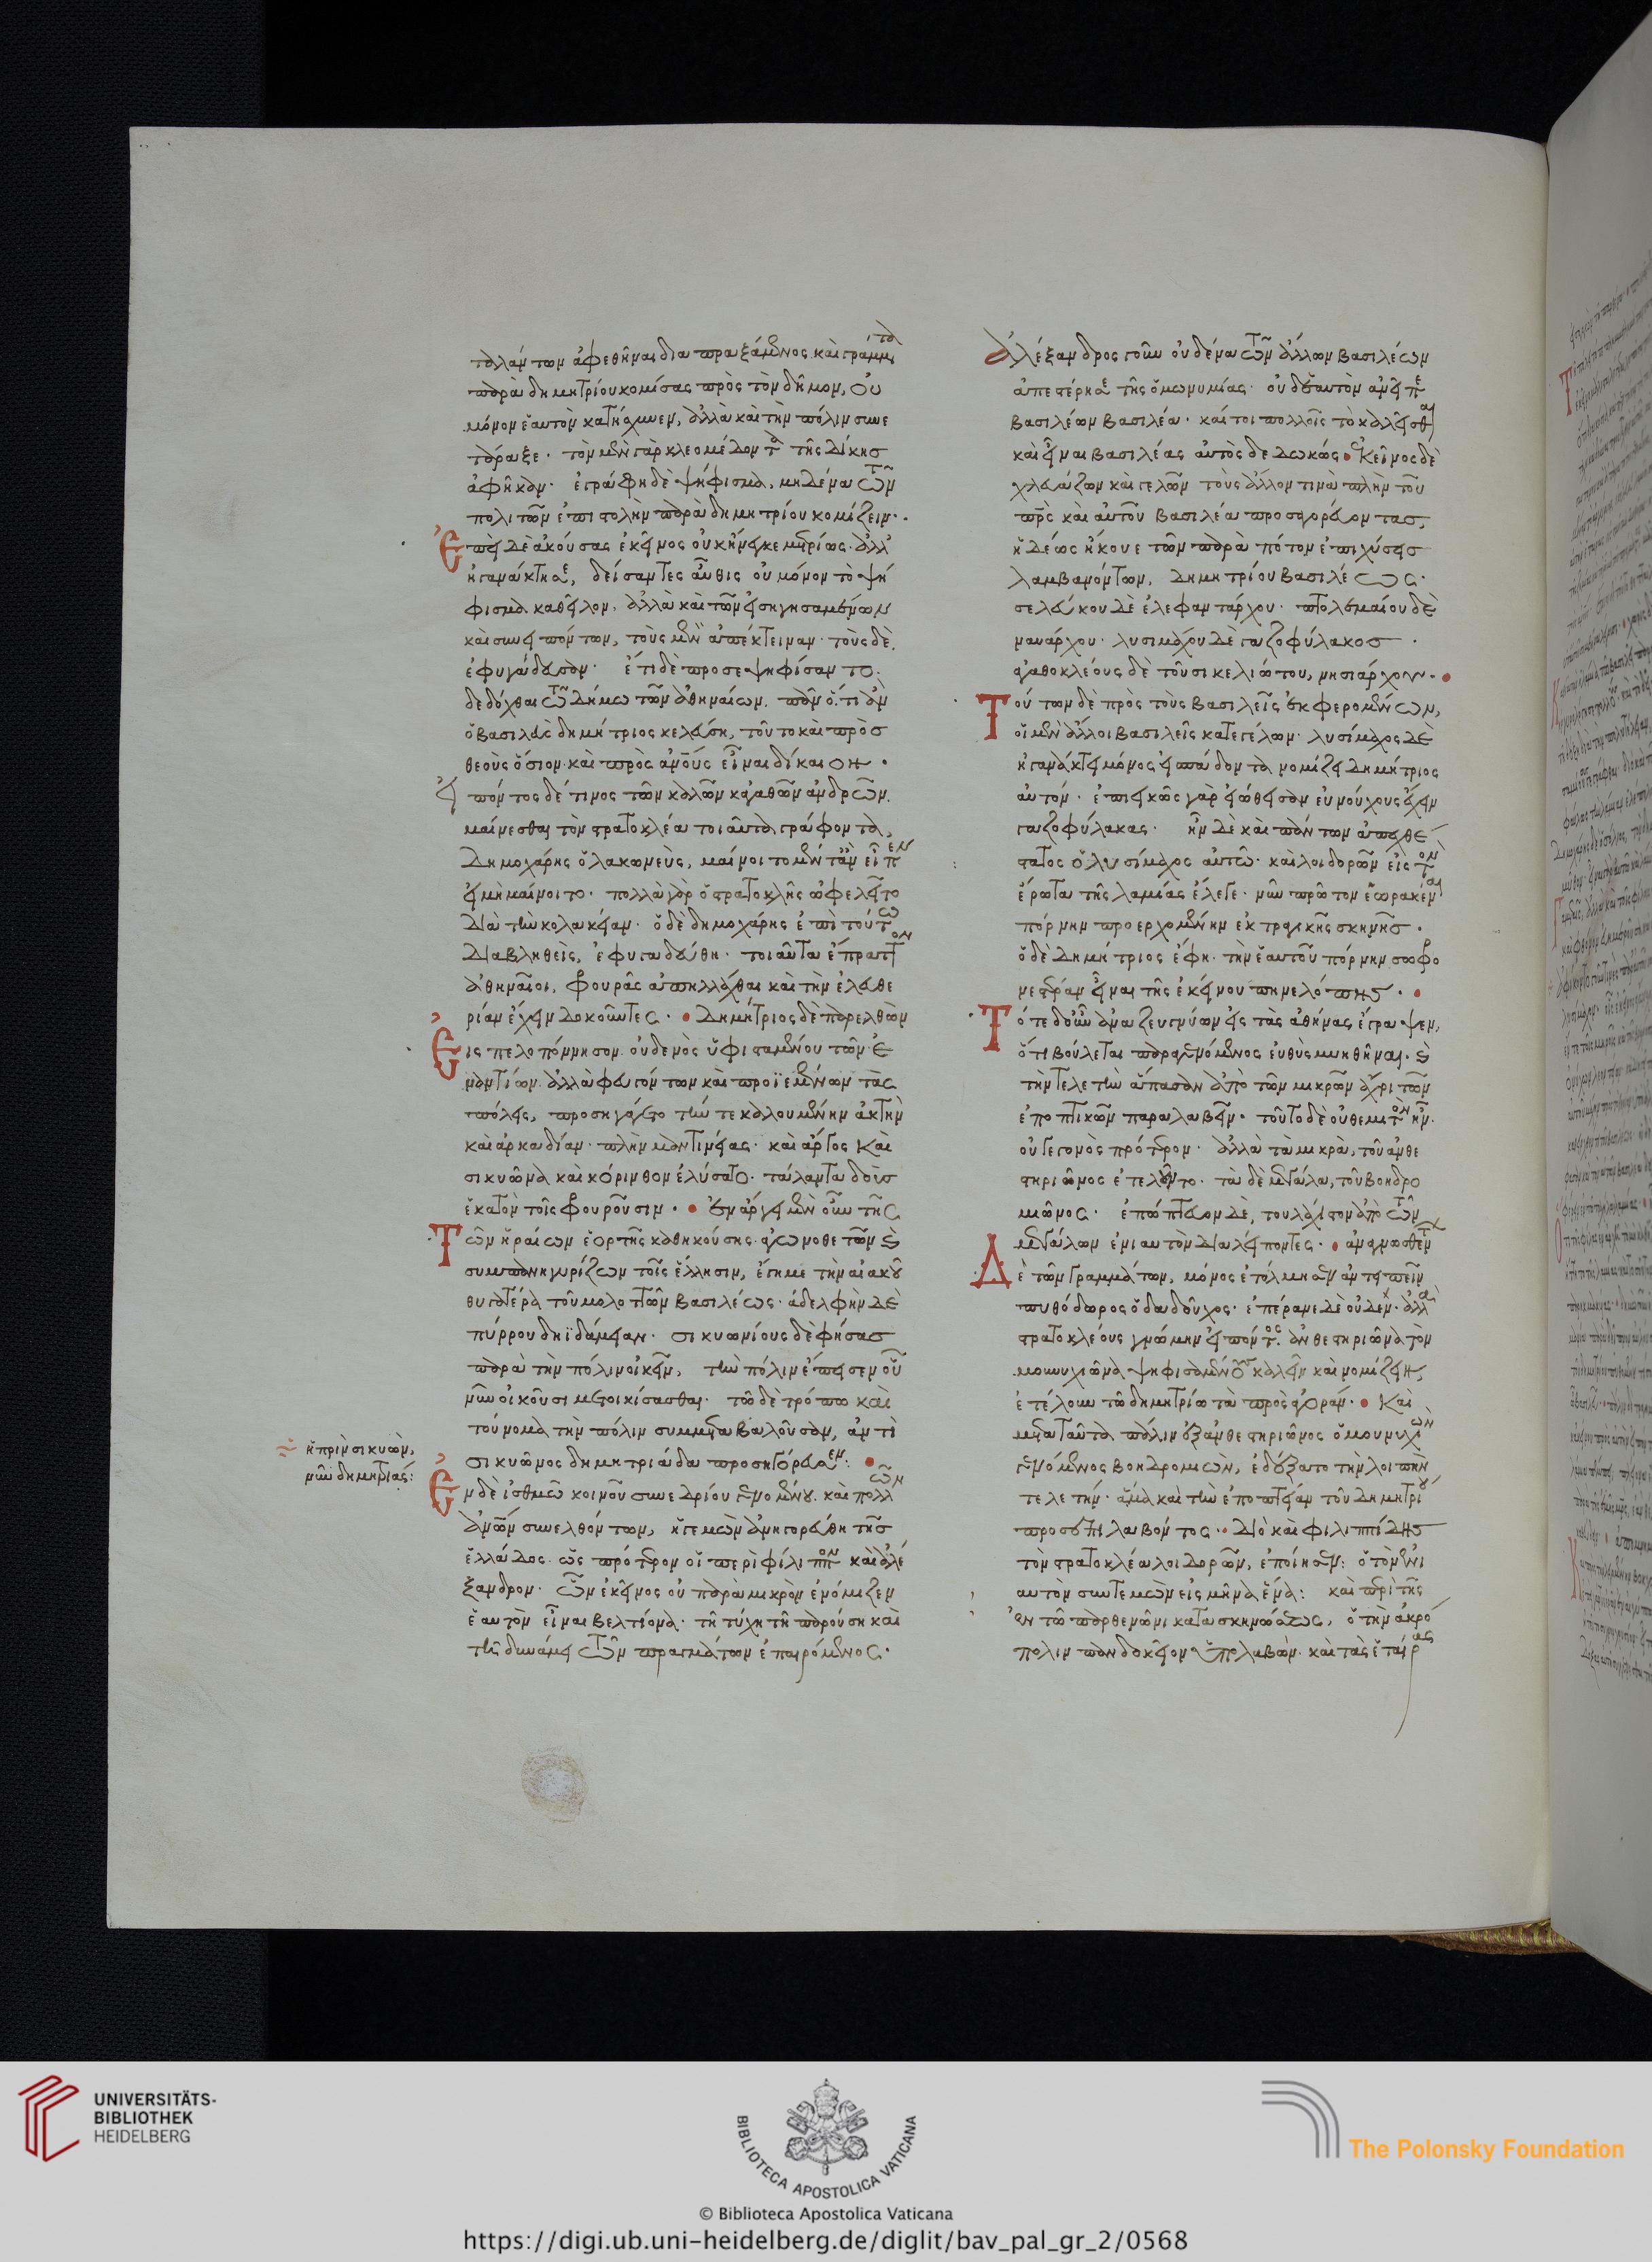 ταλάντων ἀφεθῆναι διαπραξάμενος καὶ γράμματα
παρὰ δημητρίου κομίσας πρὸς τὸν δῆμον, οὐ
μόνον ἑαυτὸν κατήσχυνεν, ἀλλὰ καὶ τὴν πόλιν συνε
τάραξε. τὸν μὲν γὰρ κλεομέδοντα τῆς δίκης
ἀφῆκαν. ἐγράφη δὲ ψήφισμα, μηδένα τῶν
πολιτῶν ἐπιστολὴν παρὰ δημητρίου κομίζειν.
Ἐπεὶ δὲ ἀκούσας ἐκεῖνος οὐκ ἤνεγκε μετρίως. ἀλλ'
ἠγανάκτησε, δείσαντες αὖθις οὐ μόνον τὸ ψή
φισμα καθεῖλον, ἀλλὰ καὶ τῶν εἰσηγησαμένων
καὶ συνειπόντων, τοὺς μὲν ἀπέκτειναν. τοὺς δὲ
ἐφυγάδευσαν. ἔτι δὲ προσεψηφίσαντο.
δεδόχθαι τῶ δήμω τῶν ἀθηναίων. πᾶν ὅ,τι ἂν
ὁ βασιλεὺς δημήτριος κελεύση, τοῦτο καὶ πρὸς
θεοὺς ὅσιον καὶ πρὸς ἀνους εἶναι δίκαιον.
εἰπόντος δέ τινος τῶν καλῶν κἀγαθῶν ἀνδρῶν
μαίνεσθαι τὸν στρατοκλέα τοιαῦτα γράφοντα,
Δημοχάρης ὁ λακωνεὺς, μαίνοιτο μεντ' ἂν εἶπεν
εἰ μὴ μαίνοιτο. πολλὰ γὰρ ὁ στρατοκλῆς ὠφελεῖτο
διὰ τὴν κολακείαν. ὁ δὲ δημοχάρης ἐπὶ τούτω
διαβληθεὶς, ἐφυγαδεύθη. τοιαῦτα ἔπραττον
ἀθηναῖοι, φρουρᾶς ἀπηλλάχθαι καὶ τὴν ἐλευθε
ρίαν ἔχειν δοκοῦντες. Δημήτριος δὲ παρελθὼν
Εἰς πελοπόννησον. οὐδενὸς ὑφισταμένου τῶν ἐ
ναντίων. ἀλλὰ φευγόντων καὶ προϊεμένων τὰς
πόλεις, προσηγάγετο τήν τε καλουμένην ἀκτὴν
καὶ ἀρκαδίαν. πλὴν μαντινείας. καὶ ἄργος καὶ
σικυῶνα καὶ κόρινθον ἐλύσατο. τάλαντα δοὺς
ἑκατὸν τοῖς φρουροῦσιν. ἐν ἄργει μὲν οὖν τῆς
Τῶν ἡραίων ἑορτῆς καθηκούσης. ἀγωνοθετῶν καὶ
συμπανηγυρίζων τοῖς ἕλλησιν, ἔγημε τὴν αἰακοῦ
θυγατέρα τοῦ μολοττῶν βασιλέως. ἀδελφὴν δὲ
πύρρου δηϊδάμειαν. σικυωνίους δὲ φήσας
παρὰ τὴν πόλιν οἰκεῖν, τὴν πόλιν ἔπεισεν οὗ
νῦν οἰκοῦσι μετοικίσασθαι. τῶ δὲ τρόπω καὶ
τοὔνομα τὴν πόλιν συμμεταβαλοῦσαν, ἀντὶ
σικυῶνος δημητριάδα προσηγόρευσεν:
Ἐν δὲ ἰσθμῶ κοινοῦ συνεδρίου γενομένου. καὶ πολλῶν
ἀνων συνελθόντων, ἡγεμὼν ἀνηγορεύθη τῆς
ἑλλάδος. ὡς πρότερον οἱ περὶ φίλιππον καὶ ἀλέ
ξανδρον. ὧν ἐκεῖνος οὐ παρὰ μικρὸν ἐνόμιζεν
ἑαυτὸν εἶναι βελτίονα. τῆ τύχη τῆ παρούση καὶ
τῆ δυνάμει τῶν πραγμάτων ἐπαιρόμενος.
ἡ πρὶν σικυὼν,
νῦν δημητριάς:
Ἀλέξανδρος γοῦν οὐδένα τῶν ἄλλων βασιλέων
ἀπεστέρησε τῆς ὁμωνυμίας. οὐδ' ἑαυτὸν ἀνεῖπε
βασιλέων βασιλέα. καίτοι πολλοῖς τὸ καλεῖσθαι
καὶ εἶναι βασιλέας αὐτὸς δεδωκώς. Ἐκεῖνος δὲ
χλευάζων καὶ γελῶν τοὺς ἄλλον τινὰ πλὴν τοῦ
πρς καὶ αὐτοῦ βασιλέα προσαγορεύοντας,
ἡδέως ἤκουε τῶν παρὰ πότον ἐπιχύσεις
λαμβανόντων, δημητρίου βασιλέως.
σελεύκου δὲ ἐλεφαντάρχου. πτολεμαίου δὲ
ναυάρχου. λυσιμάχου δὲ γαζοφύλακος.
ἀγαθοκλέους δὲ τοῦ σικελιώτου, νησιάρχου.
Τούτων δὲ πρὸς τοὺς βασιλεῖς ἐκφερομένων,
οἱ μὲν ἄλλοι βασιλεῖς κατεγέλων. λυσίμαχος δὲ
ἠγανάκτει μόνος εἰ σπάδοντα νομίζει Δημήτριος
αὐτόν. ἐπιεικῶς γὰρ εἰώθεισαν εὐνούχους ἔχειν
γαζοφύλακας. ἦν δὲ καὶ πάντων ἀπεχθέ
στατος ὁ λυσίμαχος αὐτῶ. καὶ λοιδορῶν εἰς τὸν
ἔρωτα τῆς λαμίας ἔλεγε. νῦν πρῶτον ἑωρακέναι
πόρνην προερχομένην ἐκ τραγικῆς σκηνῆς.
ὁ δὲ Δημήτριος ἔφη. τὴν ἑαυτοῦ πόρνην σωφρο
νεστέραν εἶναι τῆς ἐκείνου πηνελόπης.
Τότε δ' οὖν ἀναζευγνύων εἰς τὰς ἀθήνας, ἔγραψεν,
ὅτι βούλεται παραγενόμενος εὐθὺς μυηθῆναι. καὶ
τὴν τελετὴν ἅπασαν ἀπὸ τῶν μικρῶν ἄχρι τῶν
ἐποπτικῶν παραλαβεῖν. τοῦτο δὲ οὐ θεμιτὸν ἦν.
οὐ γεγονὸς πρότερον. ἀλλὰ τὰ μικρὰ, τοῦ ἀνθε
στηριῶνος ἐτελοῦντο. τὰ δὲ μεγάλα, τοῦ βοηδρο
μιῶνος. ἐπώπτευον δὲ, τουλάχιστον ἀπὸ τῶν
μεγάλων ἐνιαυτὸν διαλείποντες. ἀναγνωσθέντων
Δὲ τῶν γραμμάτων, μόνος ἐτόλμησεν ἀντειπεῖν
πυθόδωρος ὁ δαδοῦχος. ἐπέρανε δὲ οὐδέν. ἀλλὰ
στρατοκλέους γνώμην εἰπόντος, ἀνθεστηριῶνα τὸν
μουνυχιῶνα ψηφισαμένου καλεῖν καὶ νομίζειν,
ἐτέλουν τῶ δημητρίω τὰ πρὸς ἄγραν. Καὶ
μετὰ ταῦτα πάλιν ἐξ ἀνθεστηριῶνος ὁ μουνυχιὼν
γενόμενος βοηδρομιὼν, ἐδέξατο τὴν λοιπὴν
τελετήν. ἅμα καὶ τὴν ἐποπτείαν τοῦ δημητρίου
προσεπιλαβόντος. Διὸ καὶ φιλιππίδης
τὸν στρατοκλέα λοιδορῶν, ἐποίησεν: ὁ τὸν ἐνι
αυτὸν συντεμὼν εἰς μῆνα ἕνα: καὶ περὶ τῆς
ἐν τῶ παρθενῶνι κατασκηνώσεως, ὁ τὴν ἀκρό
πολιν πανδοκεῖον ὑπολαβὼν. καὶ τὰς ἑταίρας
UNIVERSITÄTS-
BIBLIOTHEK
HEIDELBERG
BIBLIOTECA APOSTOLICA VATICANA
The Polonsky Foundation
© Biblioteca Apostolica Vaticana
https://digi.ub.uni-heidelberg.de/diglit/bav_pal_gr_2/0568